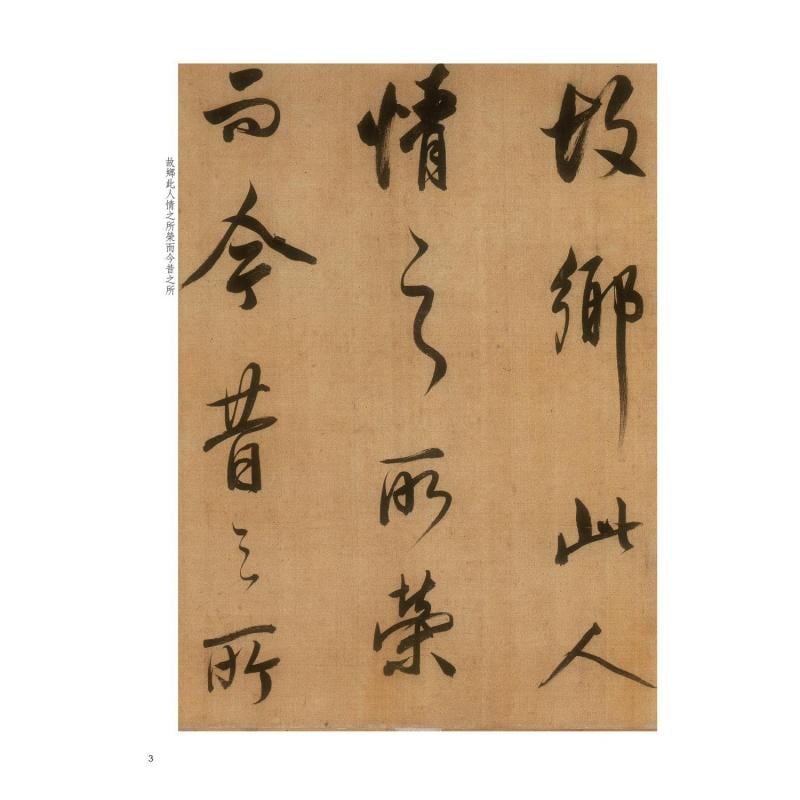 故鄉此人
情之所榮
而今昔之所
故鄉此人情之所榮而今昔之所
3